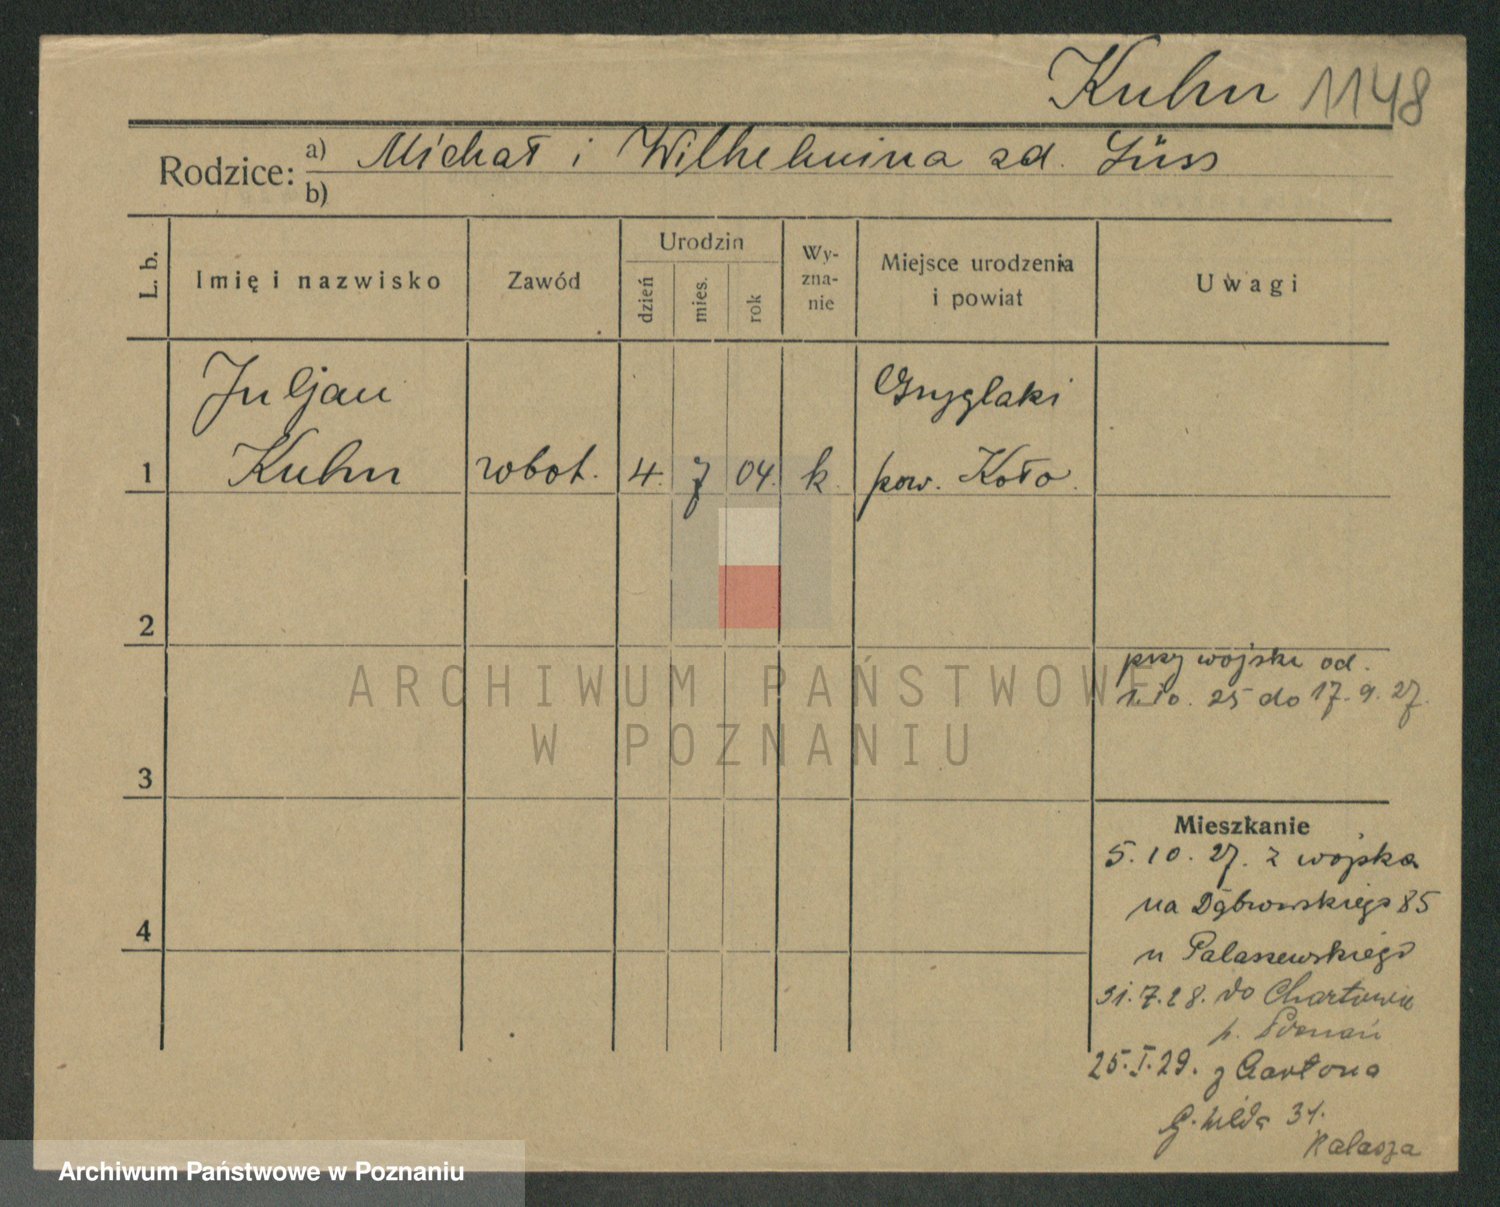 Kuhn 1148
Rodzice: a) Michał i Wilhelmina zd. Süss
b)
L. b.
Imię i nazwisko
Zawód
Urodzin
dzień
mies.
rok
Wy-
zna-
nie
Miejsce urodzenia
i powiat
Uwagi
Juljan
Kuhn
1
robot.
4. 7 04.
k.
Gryglaki
pow. Koło.
2
3
4
przy wojsku od.
1.10. 25 do 17. 9. 27.
Mieszkanie
5. 10. 27. z wojska
na Dąbrowskiego 85
u Palaszewskiego
31. 7. 28. do Chartowa
p. Poznań
25. I. 29. z
G. Wilda 31.
ARCHIWUM PAŃSTWOWE
W POZNANIU
Archiwum Państwowe w Poznaniu